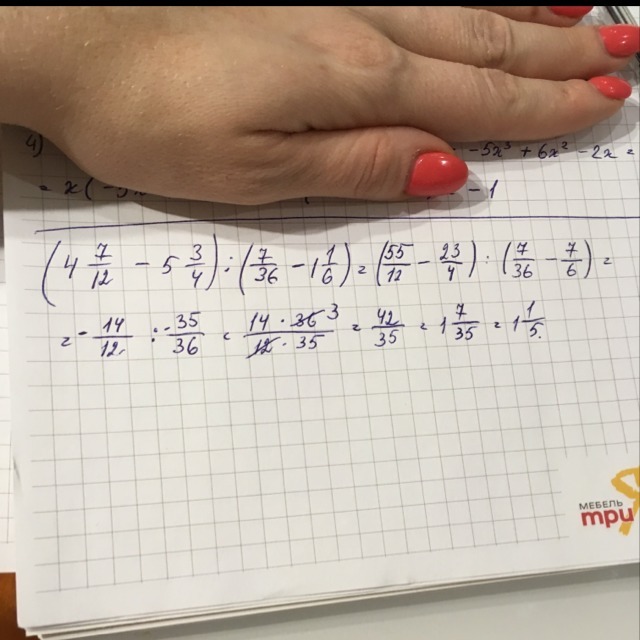 4) - 5x³ + 6x² - 2x =
= x(-5x - 1
(4 7/12 - 5 3/4) : (7/36 - 1 1/6) = (55/12 - 23/4) : (7/36 - 7/6) =
= - 14/12 : - 35/36 = 14 · 36 3/12 · 35 = 42/35 = 1 7/35 = 1 1/5.
МЕБЕЛЬ
три